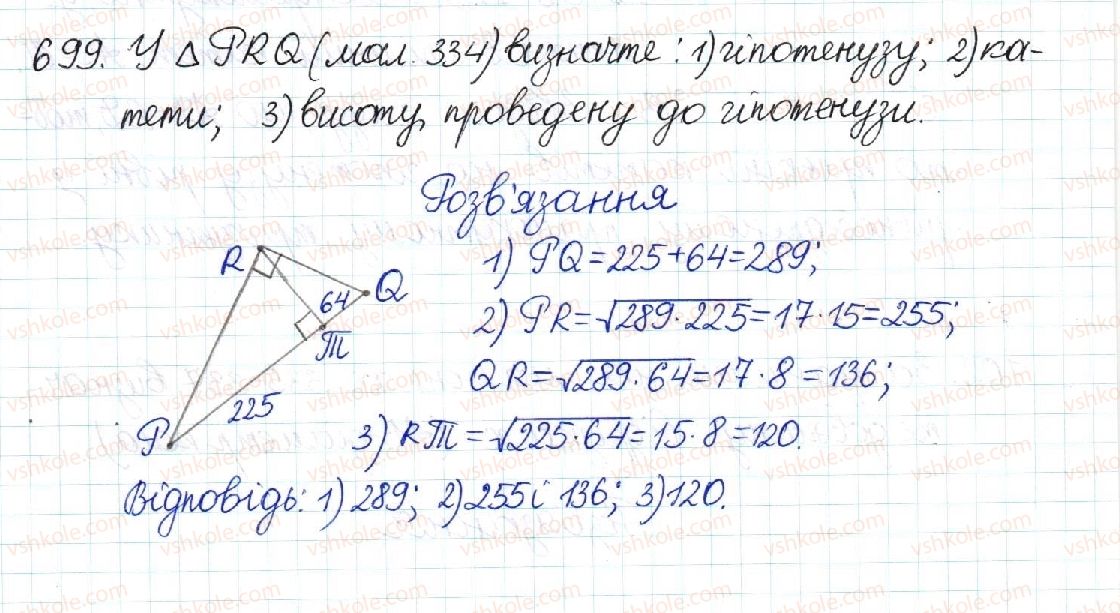 699. У △ PRQ (мал. 334) визначте: 1) гіпотенузу; 2) ка-
тети; 3) висоту, проведену до гіпотенузи.
Розв'язання
1) PQ = 225 + 64 = 289;
R
64 Q
2) PR = √289·225 = 17·15 = 255;
T
QR = √289·64 = 17·8 = 136;
225
P
3) RT = √225·64 = 15·8 = 120.
Відповідь: 1) 289; 2) 255 і 136; 3) 120.